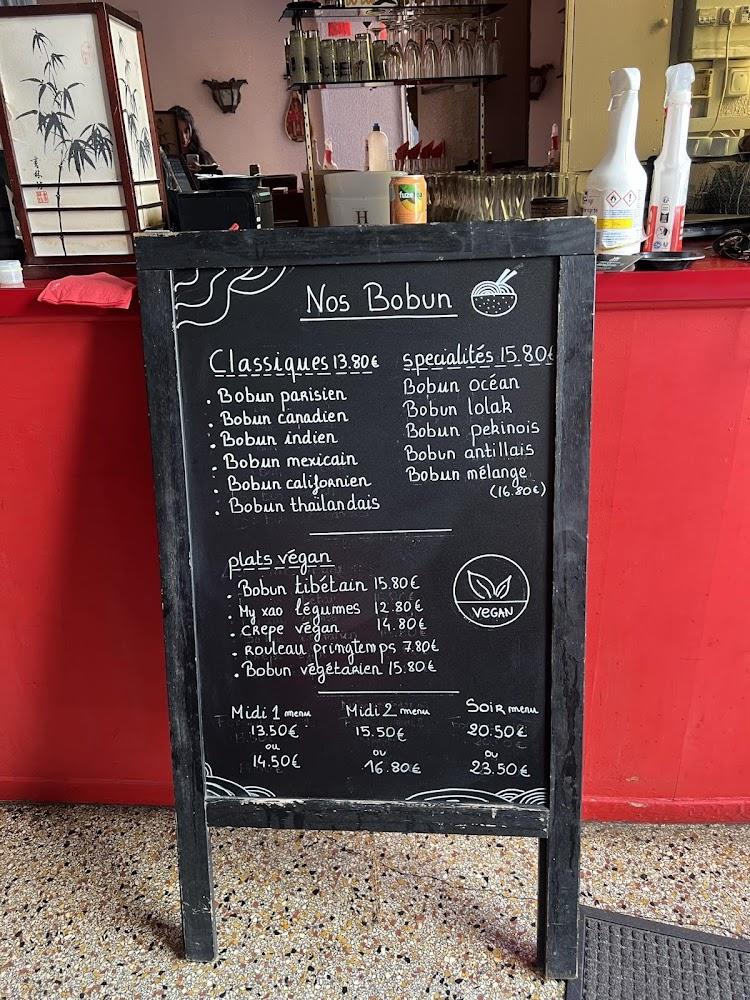 fuze
H
Nos Bobun
Classiques 13.80€
. Bobun parisien
. Bobun canadien
. Bobun indien
. Bobun mexicain
. Bobun californien
. Bobun thaïlandais
specialités 15.80€
Bobun océan
Bobun lolak
Bobun pekinois
Bobun antillais
Bobun mélange
(16.80€)
plats végan
. Bobun tibétain 15.80€
. My xao légumes 12.80€
. crepe végan 14.80€
. rouleau pringtemps 7.80€
. Bobun végétarien 15.80€
VEGAN
Midi 1 menu
13.50€
ou
14.50€
Midi 2 menu
15.50€
ou
16.80€
Soir menu
20.50€
ou
23.50€